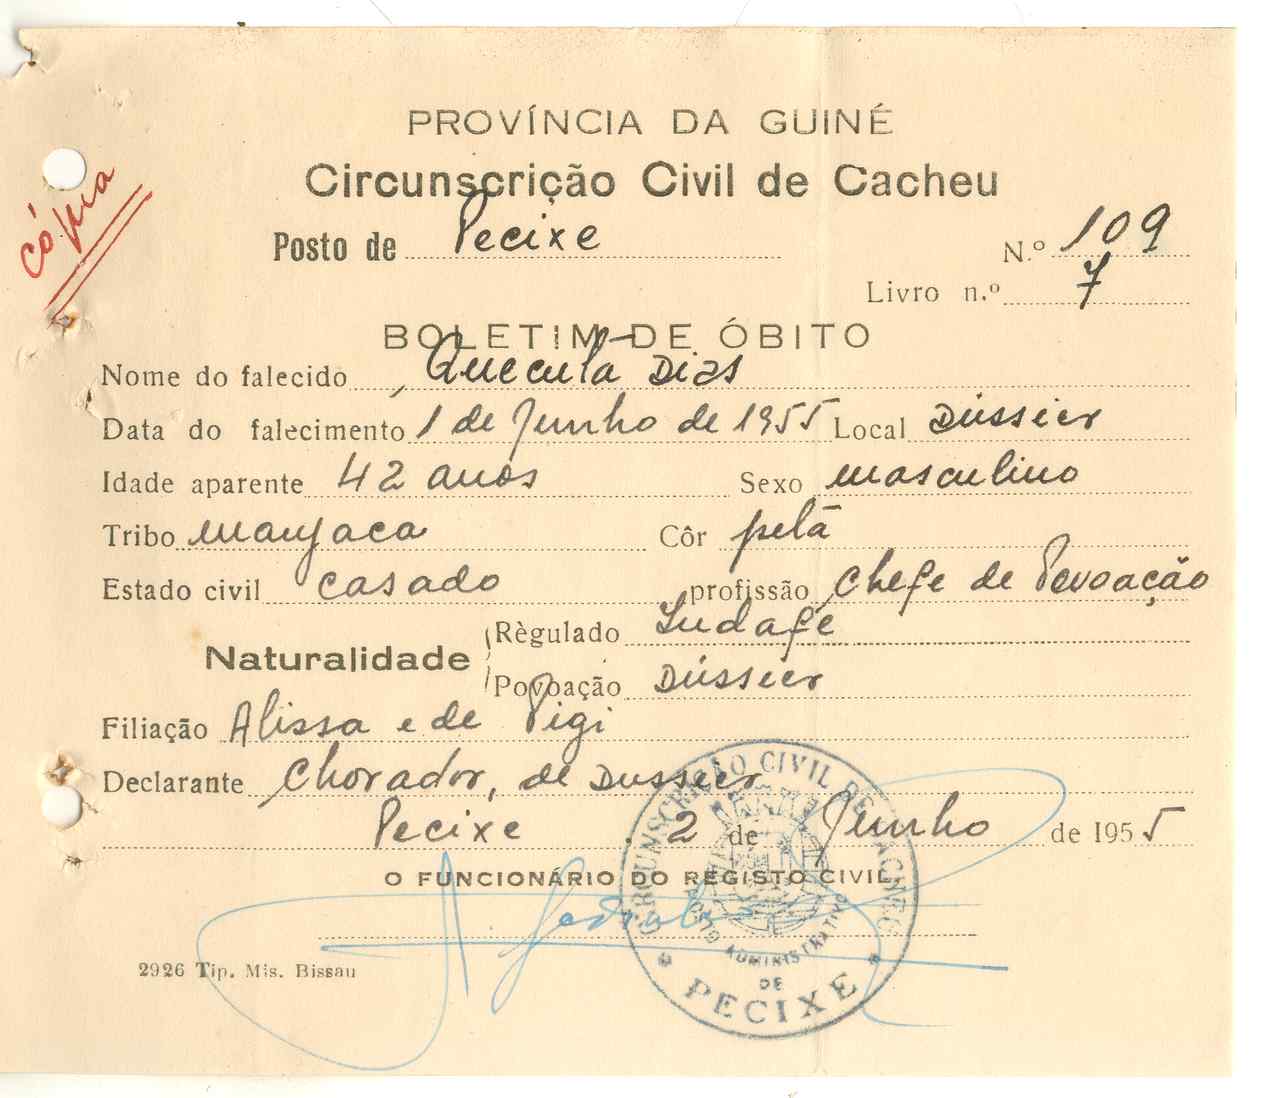 cópia
PROVÍNCIA DA GUINÉ
Circunscrição Civil de Cacheu
Posto de Pecixe N.º 109
Livro n.º 7
BOLETIM DE ÓBITO
Nome do falecido Quecuta Dias
Data do falecimento 1 de Junho de 1955 Local Dússier
Idade aparente 42 anos Sexo masculino
Tribo manjaca Côr petâ
Estado civil casado profissão Chefe de Povoação
Naturalidade Règulado Iudafé
Povoação Dússier
Filiação Alissa e de Pigi
Declarante Chorador, de Dussier
Pecixe 2 de Junho de 1955
O FUNCIONÁRIO DO REGISTO CIVIL
CIRCUNSCRIÇÃO CIVIL DE CACHEU
POSTO ADMINISTRATIVO
DE
PECIXE
2926 Tip. Mis. Bissau